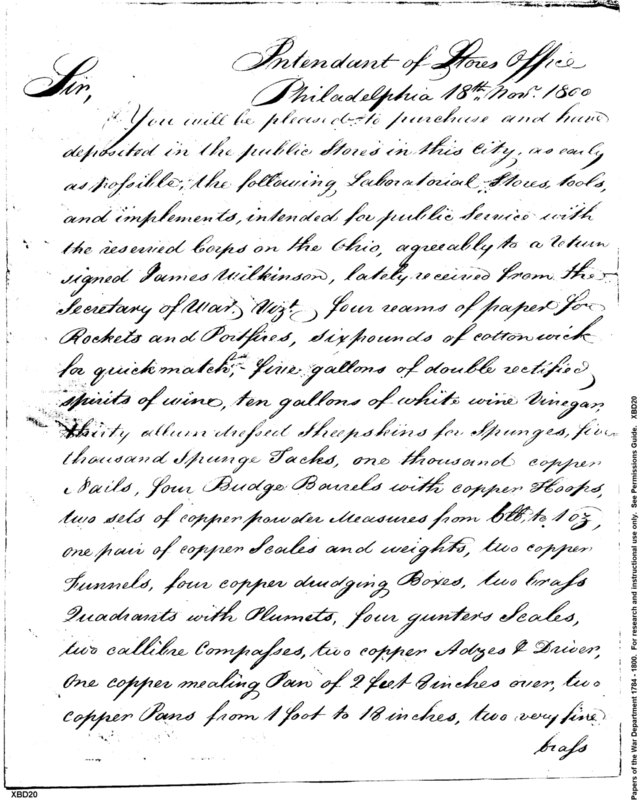 Intendant of Stores Office
Philadelphia 18th. Novr. 1800
Sir,
You will be pleased to purchase and have
deposited in the public Stores in this City, as early
as possible, the following Laboratorial Stores, tools,
and implements, intended for public Service with
the reserved Corps on the Ohio, agreeably to a return
signed James Wilkinson, lately received from the
Secretary of War. Vizt. four reams of paper for
Rockets and Portfires, six pounds of cotton wick
for quickmatch, - five gallons of double rectified
spirits of wine, ten gallons of white wine Vinegar,
thirty allum dressed Sheepskins for Spunges, five
thousand Spunge Tacks, one thousand copper
Nails, four Budge Barrels with copper Hoops,
two sets of copper powder Measures from 6lb. to 1 oz,
one pair of copper Scales and weights, two copper
Funnels, four copper drudging Boxes, two brass
Quadrants with Plumets, four gunters Scales,
two callibre Compasses, two copper Adzes & Driver,
One copper mealing Pan of 2 feet 8 inches over, two
copper Pans from 1 foot to 18 inches, two very fine
brass
XBD20
Papers of the War Department 1784 - 1800. For research and instructional use only. See Permissions Guide. XBD20